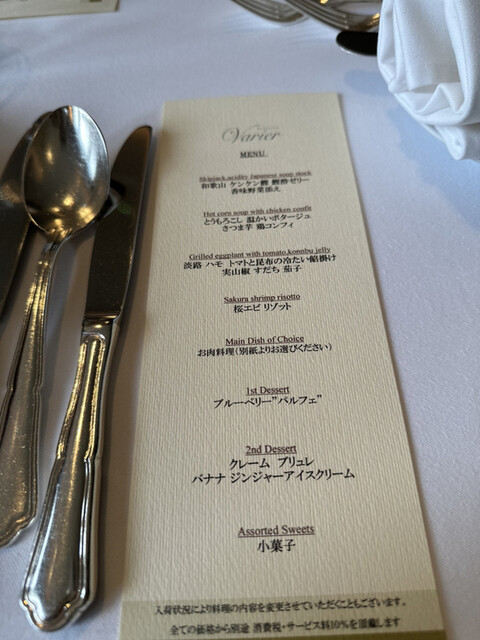 Varier
MENU
Skipjack,acidity Japanese soup stock
和歌山 ケンケン鰹 鰹酢ゼリー
香味野菜添え
Hot corn soup with chicken confit
とうもろこし 温かいポタージュ
さつま芋 鶏コンフィ
Grilled eggplant with tomato,konnbu jelly
淡路 ハモ トマトと昆布の冷たい餡掛け
実山椒 すだち 茄子
Sakura shrimp risotto
桜エビ リゾット
Main Dish of Choice
お肉料理(別紙よりお選びください)
1st Dessert
ブルーベリー”パルフェ”
2nd Dessert
クレーム ブリュレ
バナナ ジンジャーアイスクリーム
Assorted Sweets
小菓子
入荷状況により料理の内容を変更させていただくこともございます。
全ての価格から別途 消費税・サービス料10%を頂戴します